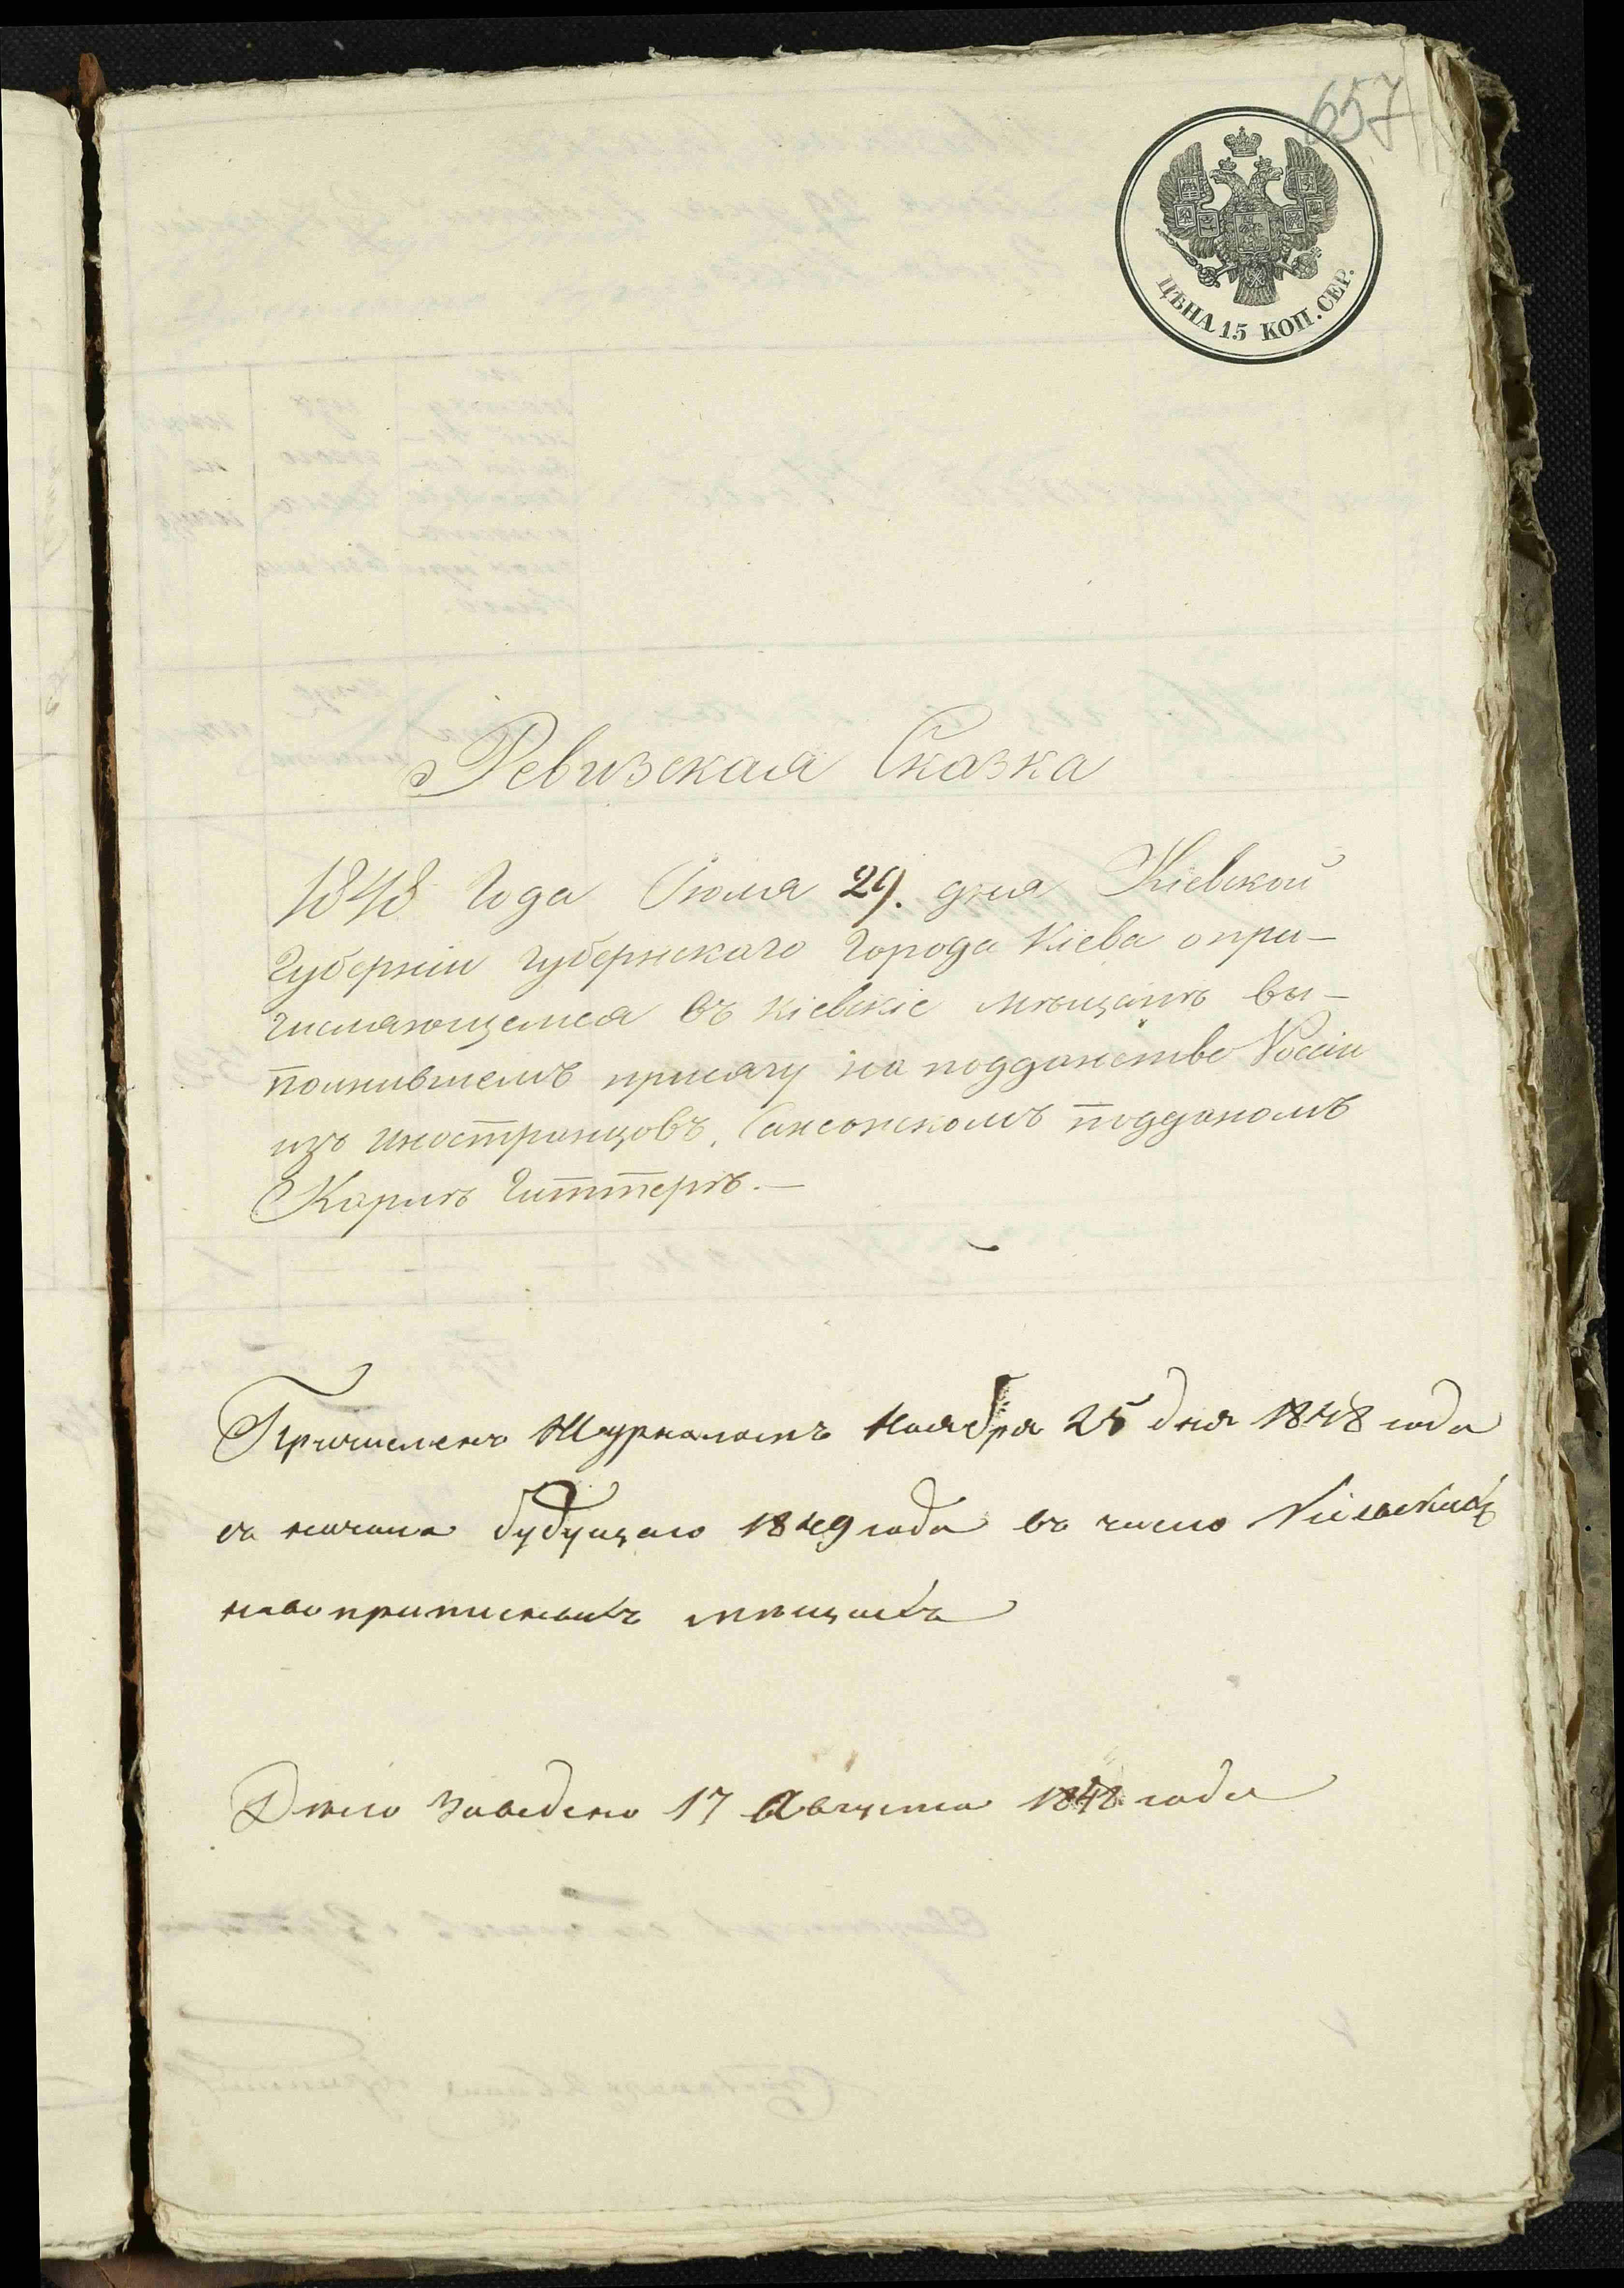 657
ЦѢНА 15 КОП. СЕР.
Ревизская Сказка
1848 Года Іюля 29. дня Кіевской
Губерніи Губернскаго Города Кіева о при-
числяющемся въ Кіевскіе мѣщанѣ вы-
полнившемъ присягу на подданство Россіи
изъ иностранцовъ, Саксонскомъ подданомъ
Карлѣ Гиттерѣ.—
Причисленъ Журналомъ Ноября 25 дня 1848 года
съ начала будущаго 1849 года въ число Кіевскихъ
новоприписныхъ мѣщанъ
Дѣло заведено 17 Августа 1848 года